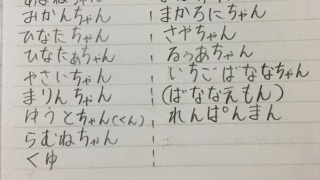 みかんちゃん
ひなたちゃん
ひなたぁちゃん
やさいちゃん
まりんちゃん
ゆうとちゃん(くん)
らむねちゃん
くゆ
まかろにちゃん
さやちゃん
るぅあちゃん
いちごばななちゃん
(ばななえもん)
れんぱんまん